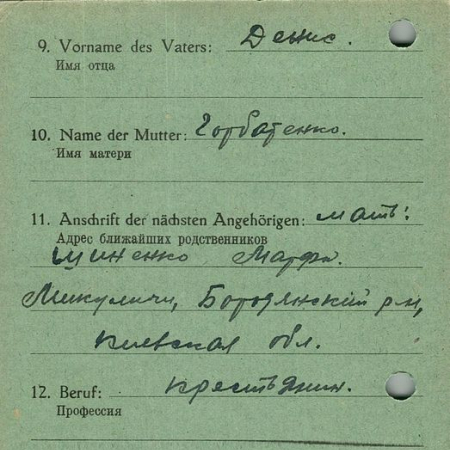 9. Vorname des Vaters: Денис.
Имя отца
10. Name der Mutter: Горбатенко.
Имя матери
11. Anschrift der nächsten Angehörigen: мать:
Адрес ближайших родственников
Шиненко Марфа.
Микуличи, Бородянский р-н,
Киевская обл.
12. Beruf: крестьянин.
Профессия